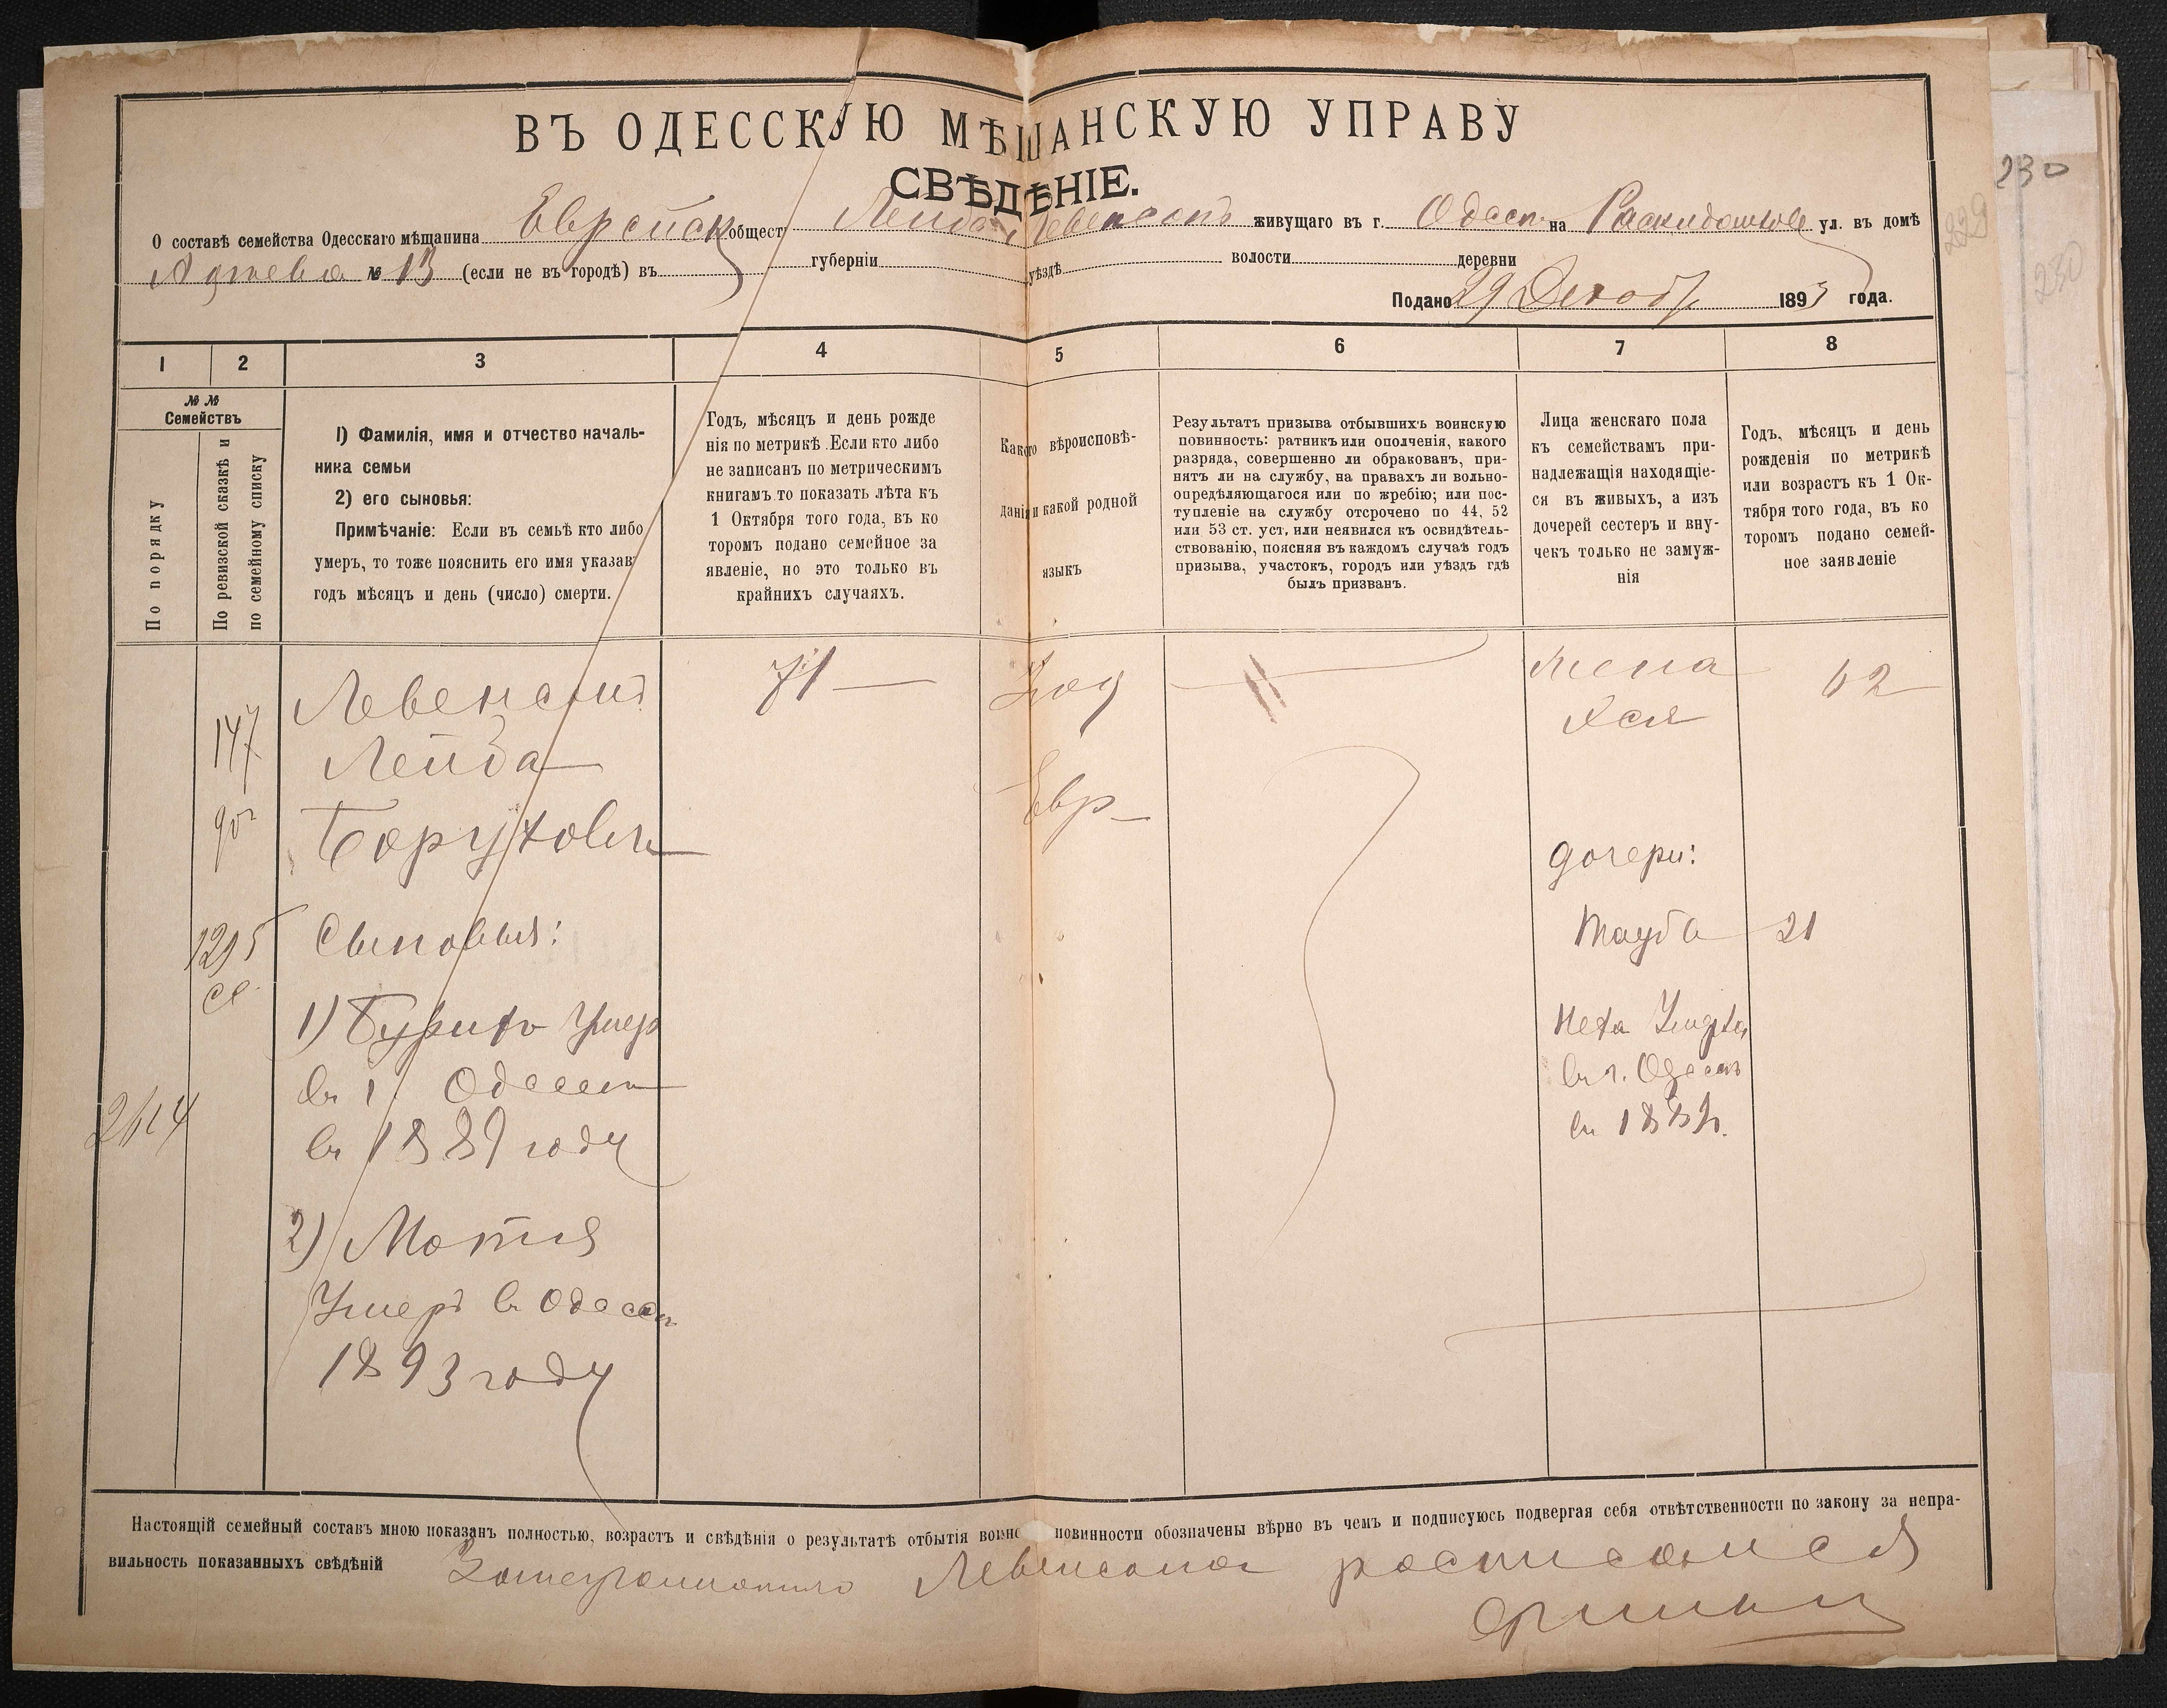 ВЪ ОДЕССКУЮ МѢЩАНСКУЮ УПРАВУ
СВѢДѢНІЕ.
О составѣ семейства Одесскаго мѣщанина Еврейск общест Лейба Левенсонъ живущаго въ г. Одессѣ на ул. въ домѣ
№ 13 (если не въ городѣ) въ губерніи уѣздѣ волости деревни
Подано 29 Декаб 1893 года.
1 2 3 4 5 6 7 8
№ № Семействъ
По порядку
По ревизской сказкѣ и по семейному списку
1) Фамилія, имя и отчество началь-
ника семьи
2) его сыновья:
Примѣчаніе: Если въ семьѣ кто либо
умеръ, то тоже пояснить его имя указавъ
годъ мѣсяцъ и день (число) смерти.
Годъ, мѣсяцъ и день рожде
нія по метрикѣ. Если кто либо
не записанъ по метрическимъ
книгамъ то показать лѣта къ
1 Октября того года, въ ко
торомъ подано семейное за
явленіе, но это только въ
крайнихъ случаяхъ.
Какого вѣроисповѣ-
данія и какой родной
языкъ
Результатъ призыва отбывшихъ воинскую
повинность: ратникъ или ополченія, какого
разряда, совершенно ли обракованъ, при-
нятъ ли на службу, на правахъ ли вольно-
опредѣляющагося или по жребію; или пос-
тупленіе на службу отсрочено по 44, 52
или 53 ст. уст. или неявился къ освидѣтель-
ствованію, поясняя въ каждомъ случаѣ годъ
призыва, участокъ, городъ или уѣздъ гдѣ
былъ призванъ.
Лица женскаго пола
къ семействамъ при-
надлежащія находящіе-
ся въ живыхъ, а изъ
дочерей сестеръ и вну-
чекъ только не замуж-
нія
Годъ, мѣсяцъ и день
рожденія по метрикѣ
или возрастъ къ 1 Ок-
тября того года, въ ко
торомъ подано семей-
ное заявленіе
147
1295
Левенсонъ
Лейба
Борухович
71
Іуд
Евр
Жена
Хся
62
Сыновья:
1) Умер
въ г. Одессѣ
въ 1889 году
2) Мотя
Умеръ въ Одессѣ
1893 году
дочери:
Тауба 21
въ г. Одессѣ
Настоящій семейный составъ мною показанъ полностью, возрастъ и свѣдѣнія о результатѣ отбытія воинс повинности обозначены вѣрно въ чемъ и подписуюсь подвергая себя отвѣтственности по закону за непра-
вильность показанныхъ свѣдѣній За неграмотнаго Левенсона росписался
230
229
230